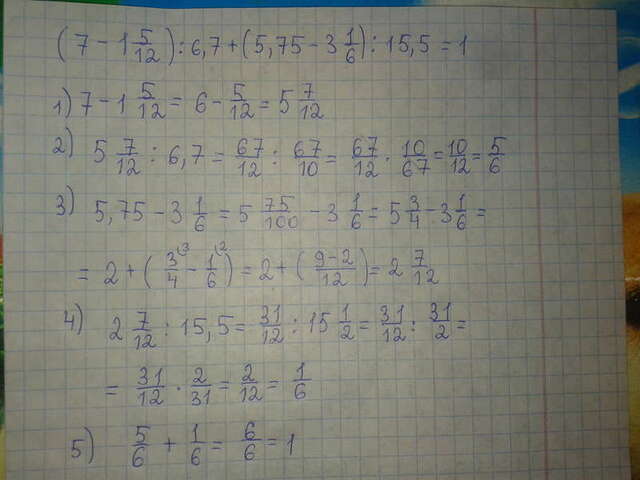 (7 - 1 5/12) : 6,7 + (5,75 - 3 1/6) : 15,5 = 1
1) 7 - 1 5/12 = 6 - 5/12 = 5 7/12
2) 5 7/12 : 6,7 = 67/12 : 67/10 = 67/12 · 10/67 = 10/12 = 5/6
3) 5,75 - 3 1/6 = 5 75/100 - 3 1/6 = 5 3/4 - 3 1/6 =
= 2 + (3/4 ^3 - 1/6 ^2) = 2 + (9-2/12) = 2 7/12
4) 2 7/12 : 15,5 = 31/12 : 15 1/2 = 31/12 : 31/2 =
= 31/12 · 2/31 = 2/12 = 1/6
5) 5/6 + 1/6 = 6/6 = 1